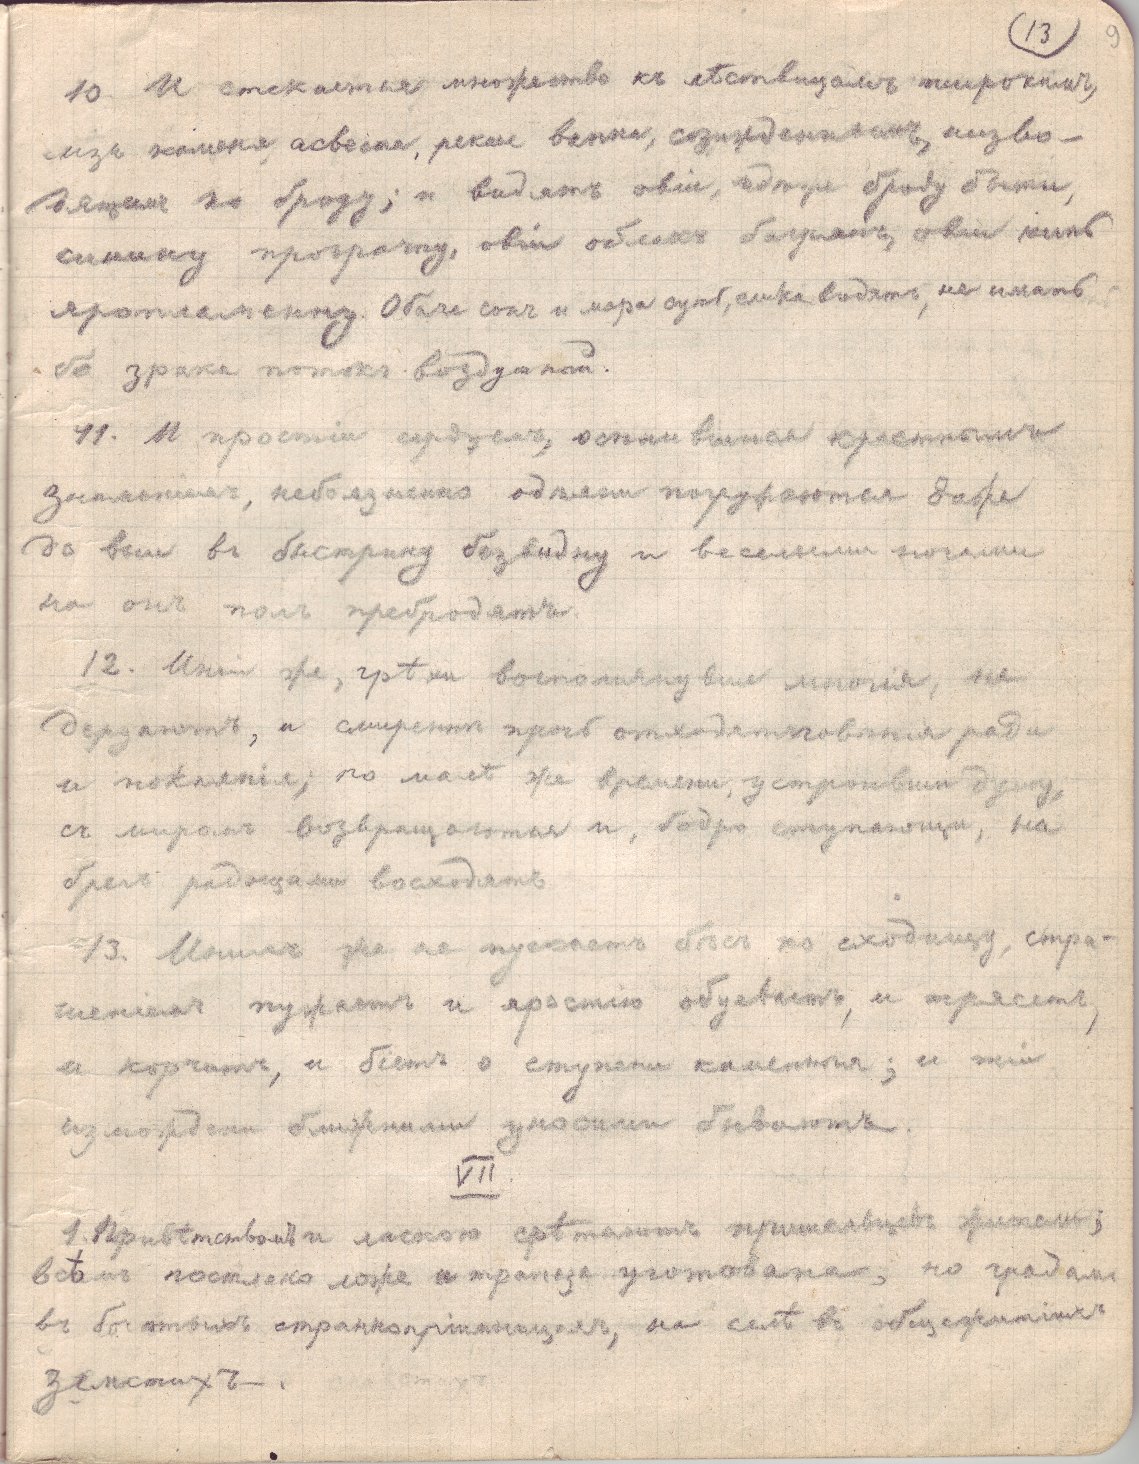 (13) 9
10. И стекается множество къ лѣствицамъ широкимъ,
изъ камене, асвеста, рекше вапна, созижденнымъ, низво-
дящимъ ко броду; и видятъ овіи, идѣже броду быти,
синину прозрачну, овіи облакъ багрянъ, овіи кипь
яропламенну. Обаче сонъ и мара суть, елика видятъ, не имать
бо зрака потокъ воздушный.
11. И простіи сердцемъ, осѣнившися крестнымъ
знаменіемъ, небоязненно одѣяни погружаются даже
до выи въ быстрину безвидну и веселыми ногами
на онъ полъ пребродятъ.
12. Иніи же, грѣхи воспомянувше многія, не
дерзаютъ, и смиренны прочь отходятъ говѣнія ради
и покаянія; по малѣ же времени, устроивши душу,
съ миромъ возвращаются и, бодро ступающи, на
брегъ радующеся восходятъ
13. Инымъ же не пускаетъ бѣсъ ко сходищу, стра-
шеніемъ пужаетъ и яростію обуеваетъ, и трясетъ,
и корчитъ, и біетъ о ступени каменныя; и тіи
измождени ближними уносими бываютъ.
VII.
1. Привѣтствомъ и ласкою срѣтаютъ пришельцевъ жители;
всѣмъ постлано ложе и трапеза уготована, по градамъ
въ богатыхъ страннопріимницахъ, на селѣ въ общежитіяхъ
земстихъ.